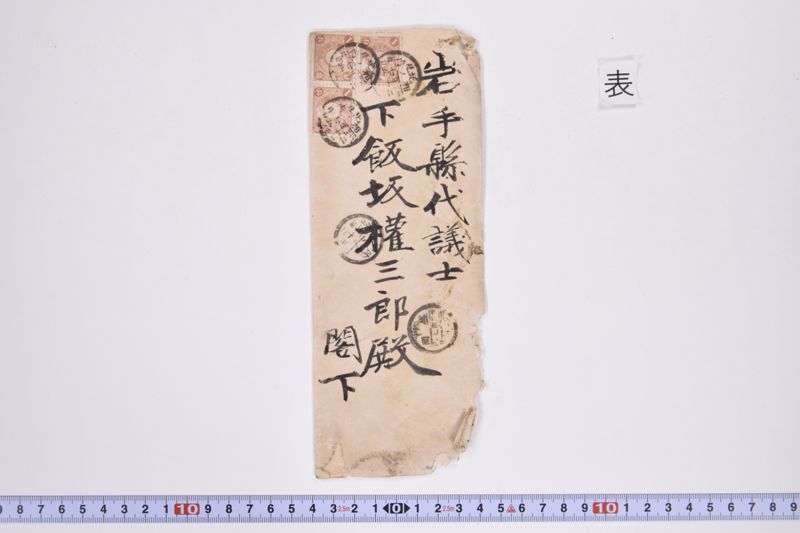 岩手縣代議士
下飯坂權三郎殿
閣下
表
9 8 7 6 5 4 3 2 1 10 9 8 7 6 5 4 3 2.5m 2 1 0 1 2 2.5m 3 4 5 6 7 8 9 10 1 2 3 4 5 6 7 8 9